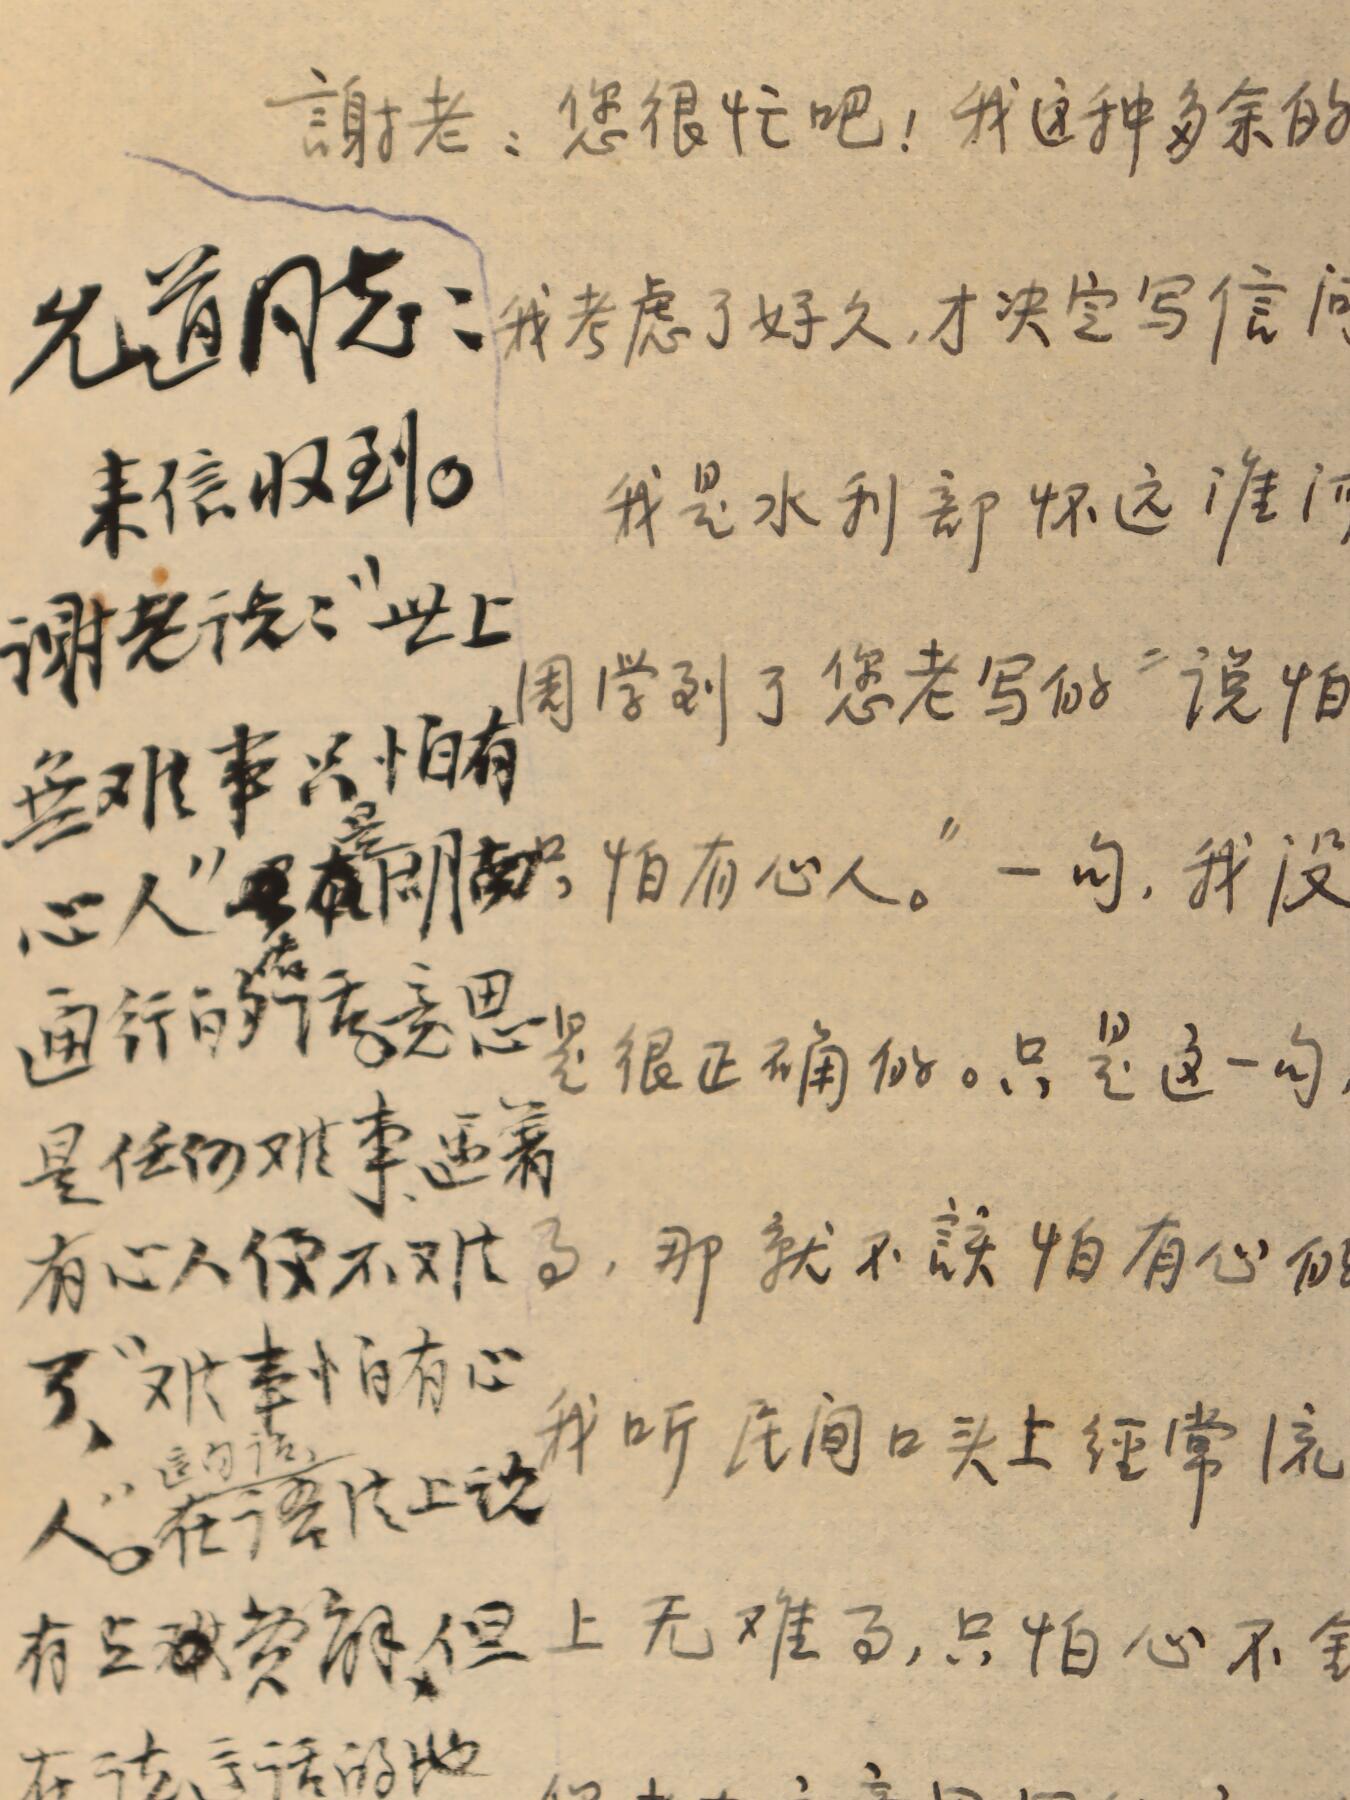 謝老：您很忙吧！我这种多余的
我考虑了好久，才决定写信问
我是水利部怀远淮河
周学到了您老写的“说怕
只怕有心人。”一句，我没
是很正确的。只是这一句，
那就不該怕有心的
我听民间口头上經常流
上无难事，只怕心不
允道同志：
来信收到。
謝老说：“世上
無难事只怕有
心人”是
通行的老话，意思
是任何难事，遇着
有心人便不难
了，“难事怕有心
人”。这句话，在语法上说
有点费解，但
在说这话的地